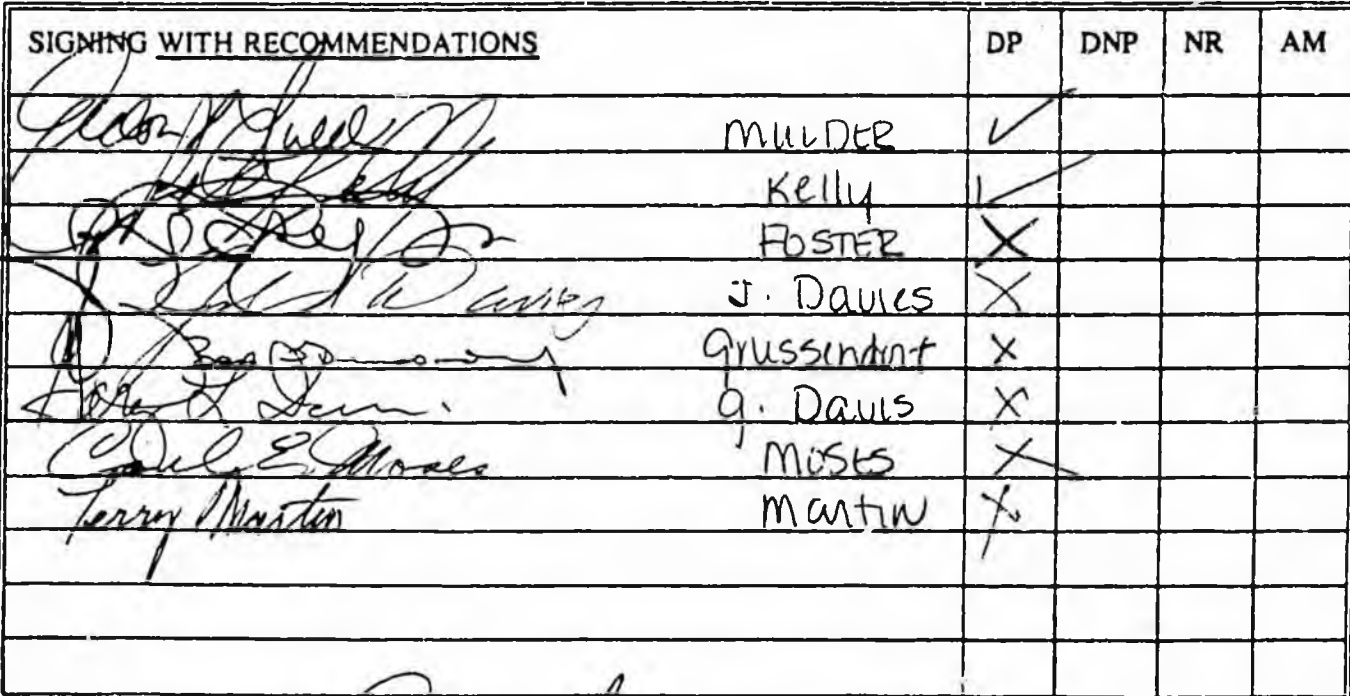 SIGNING WITH RECOMMENDATIONS DP DNP NR AM
MULDER ✓
Kelly ✓
FOSTER X
Davies J. Davies X
Grussendorf X
G. Davis X
Carl E. Moses MOSES X
Terry Martin Martin X